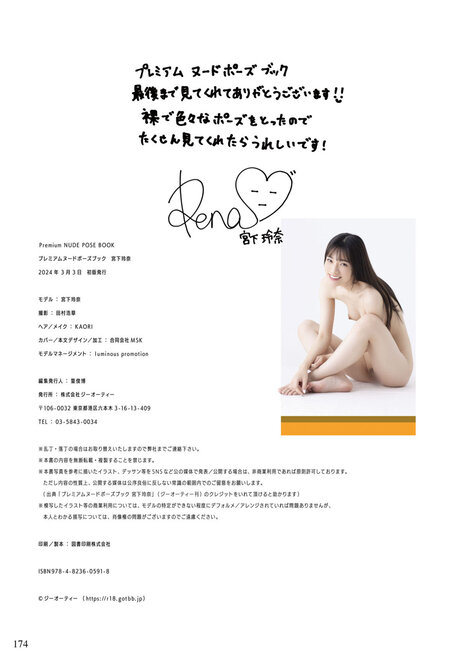 プレミアム ヌードポーズ ブック
最後まで見てくれてありがとうございます!!
裸で色々なポーズをとったので
たくさん見てくれたらうれしいです!
Rena
宮下 玲奈
Premium NUDE POSE BOOK
プレミアムヌードポーズブック 宮下玲奈
2024年3月3日 初版発行
モデル : 宮下玲奈
撮影 : 田村浩章
ヘア/メイク : KAORI
カバー/本文デザイン/加工 : 合同会社MSK
モデルマネージメント : luminous promotion
編集発行人 : 重俊博
発行所 : 株式会社ジーオーティー
〒106-0032 東京都港区六本木3-16-13-409
TEL : 03-5843-0034
※乱丁・落丁の場合はお取り替えいたしますので弊社までご連絡下さい。
※本書の内容を無断転載・複製することを禁じます。
※本書写真を参考に描いたイラスト、デッサン等をSNSなど公の媒体で発表/公開する場合は、非商業利用であれば原則許可しております。
ただし内容の性質上、公開する媒体は公序良俗に反しない常識の範囲内でのご留意をお願いします。
(出典「プレミアムヌードポーズブック 宮下玲奈」(ジーオーティー刊)のクレジットをいれて頂けると助かります)
※模写したイラスト等の商業利用については、モデルの特定ができない程度にデフォルメ/アレンジされていれば問題ありませんが、
本人とわかる描写については、肖像権の問題がございますのでご遠慮ください。
印刷/製本 : 図書印刷株式会社
ISBN978-4-8236-0591-8
©ジーオーティー (https://r18.gotbb.jp)
174